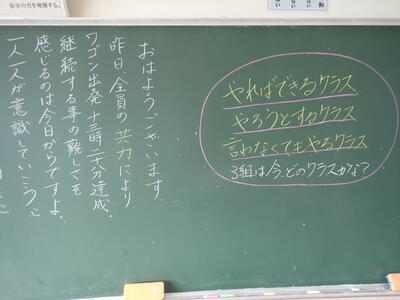 自分の力を発揮する。
おはようございます。
昨日、全員の共力により
ワゴン出発十三時二十分達成。
継続する事の難しさを
感じるのは今日からですよ。
一人一人が意識していこう
やればできるクラス
やろうとするクラス
言わなくてもやるクラス
3組は今、どのクラスかな?